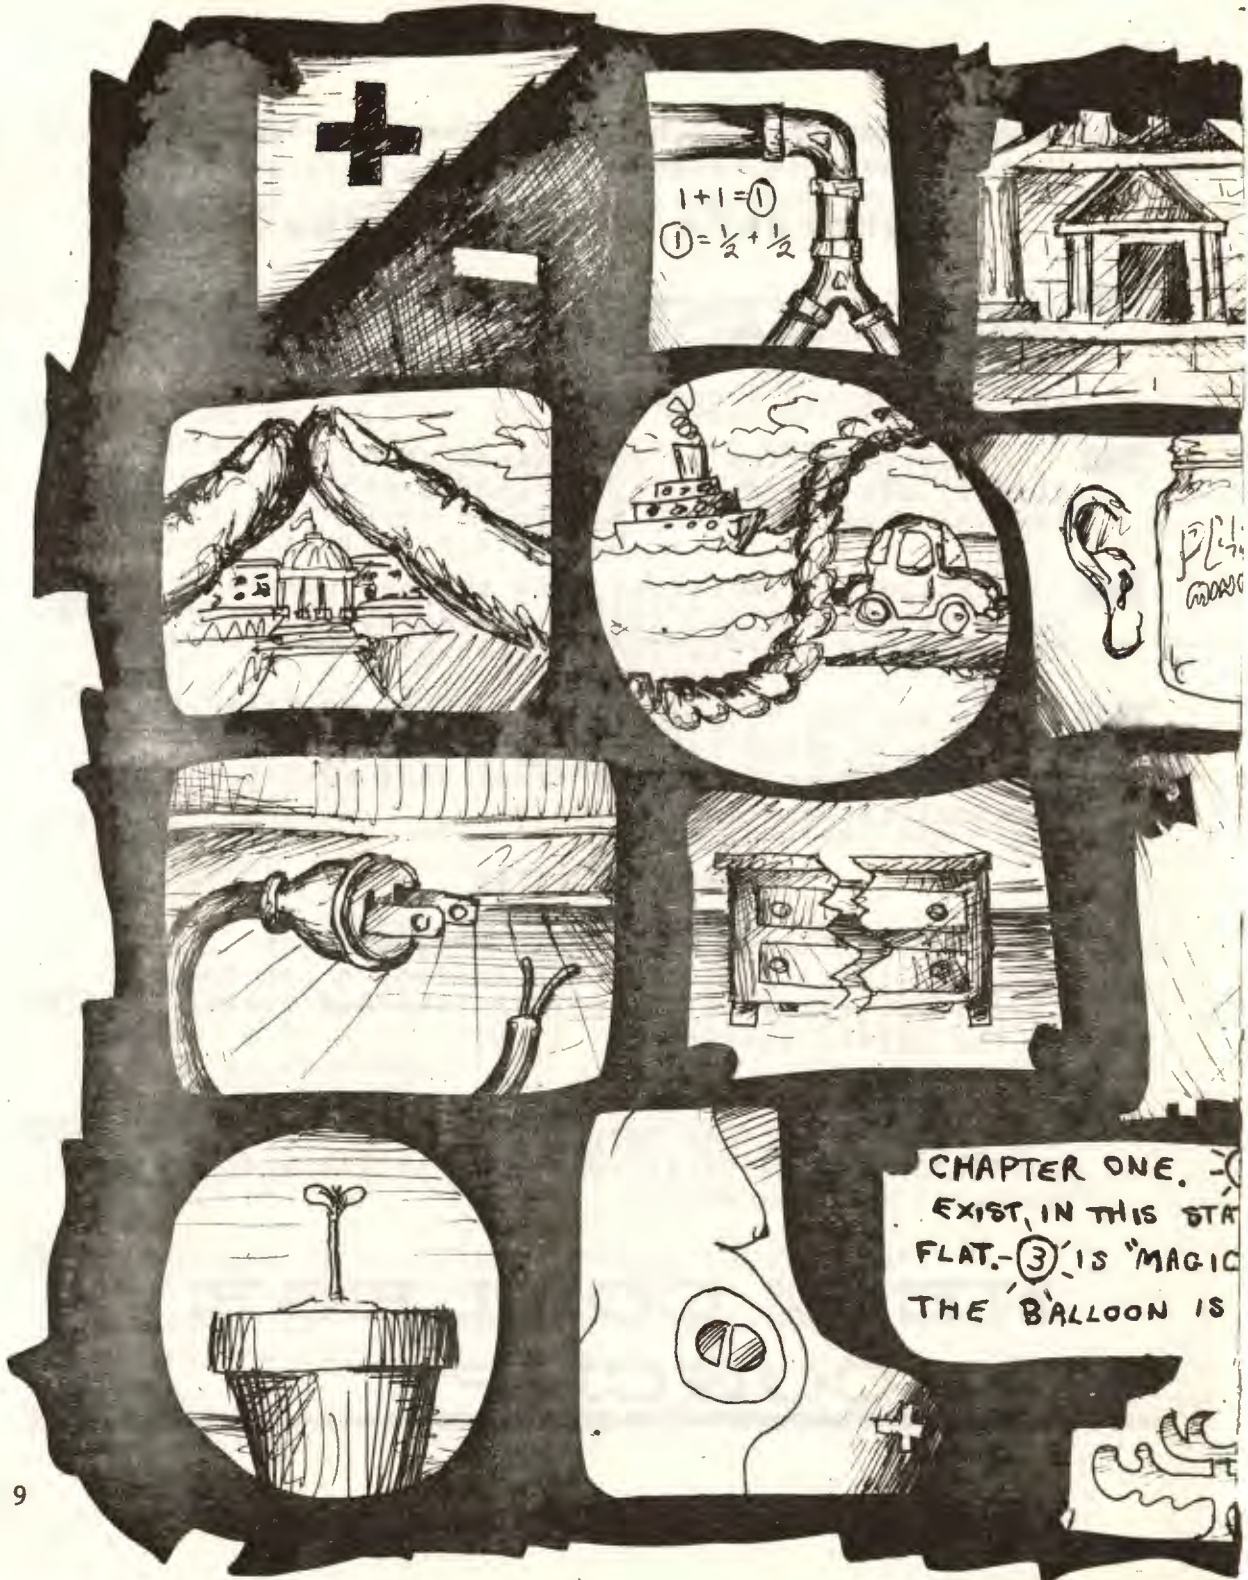 1 + 1 = 1
1 = 1/2 + 1/2
CHAPTER ONE.
EXIST, IN THIS STA
FLAT.- 3 IS "MAGIC
THE BALLOON IS
9